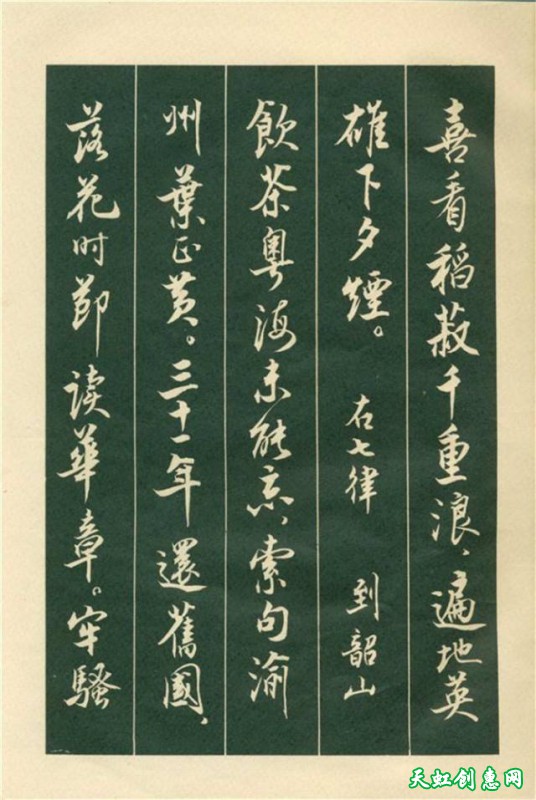 喜看稻菽千重浪、遍地英
雄下夕煙。 右七律 到韶山
飲茶粵海未能忘、索句渝
州葉正黄。三十一年還舊國、
落花时節读華章。牢騷
天虹创惠网